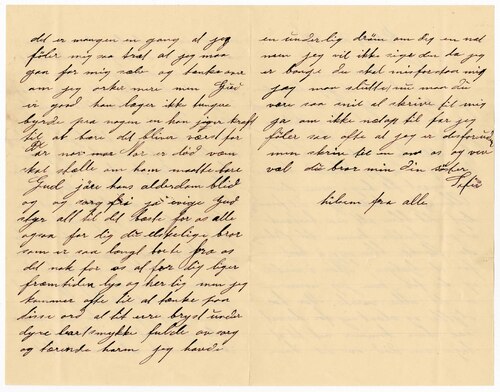 det er mangen en gang at jeg
føler mig saa træt at jeg maa
gaa for mig selv og tænke over
om jeg orker mere men Gud
er good han læger ikke tungere
byrde paa nogen en han jiger kraft
til at bære det bliver værst for
Far naar mor er død væn
skal stelle om ham maatte bare
Gud jøre hans alderdom blid
og og sorg fri ja evige Gud
styr alt til det bæste for os alle
ogsaa for dig du elskelige bror
som er saa langt borte fra os
det nok for os at for dig liger
fræmtiden lys og herlig men jeg
kommer ofte til at tænke paa
disse ord at tit erre bryst under
dyre barlsmykke fulde av sorg
og tærende harm jeg havde
en underlig drøm om dig en nat
men jeg vil ikke sige den da jeg
er bange du skal misforstaa mig
jeg maa slutte nu maa du
være saa snil at skrive til mig
ja om ikke netop til for jeg
føler saa ofte at jeg er
men skriv til en av os og vær
vel du bror min din søster
Sofie
hilsen fra alle